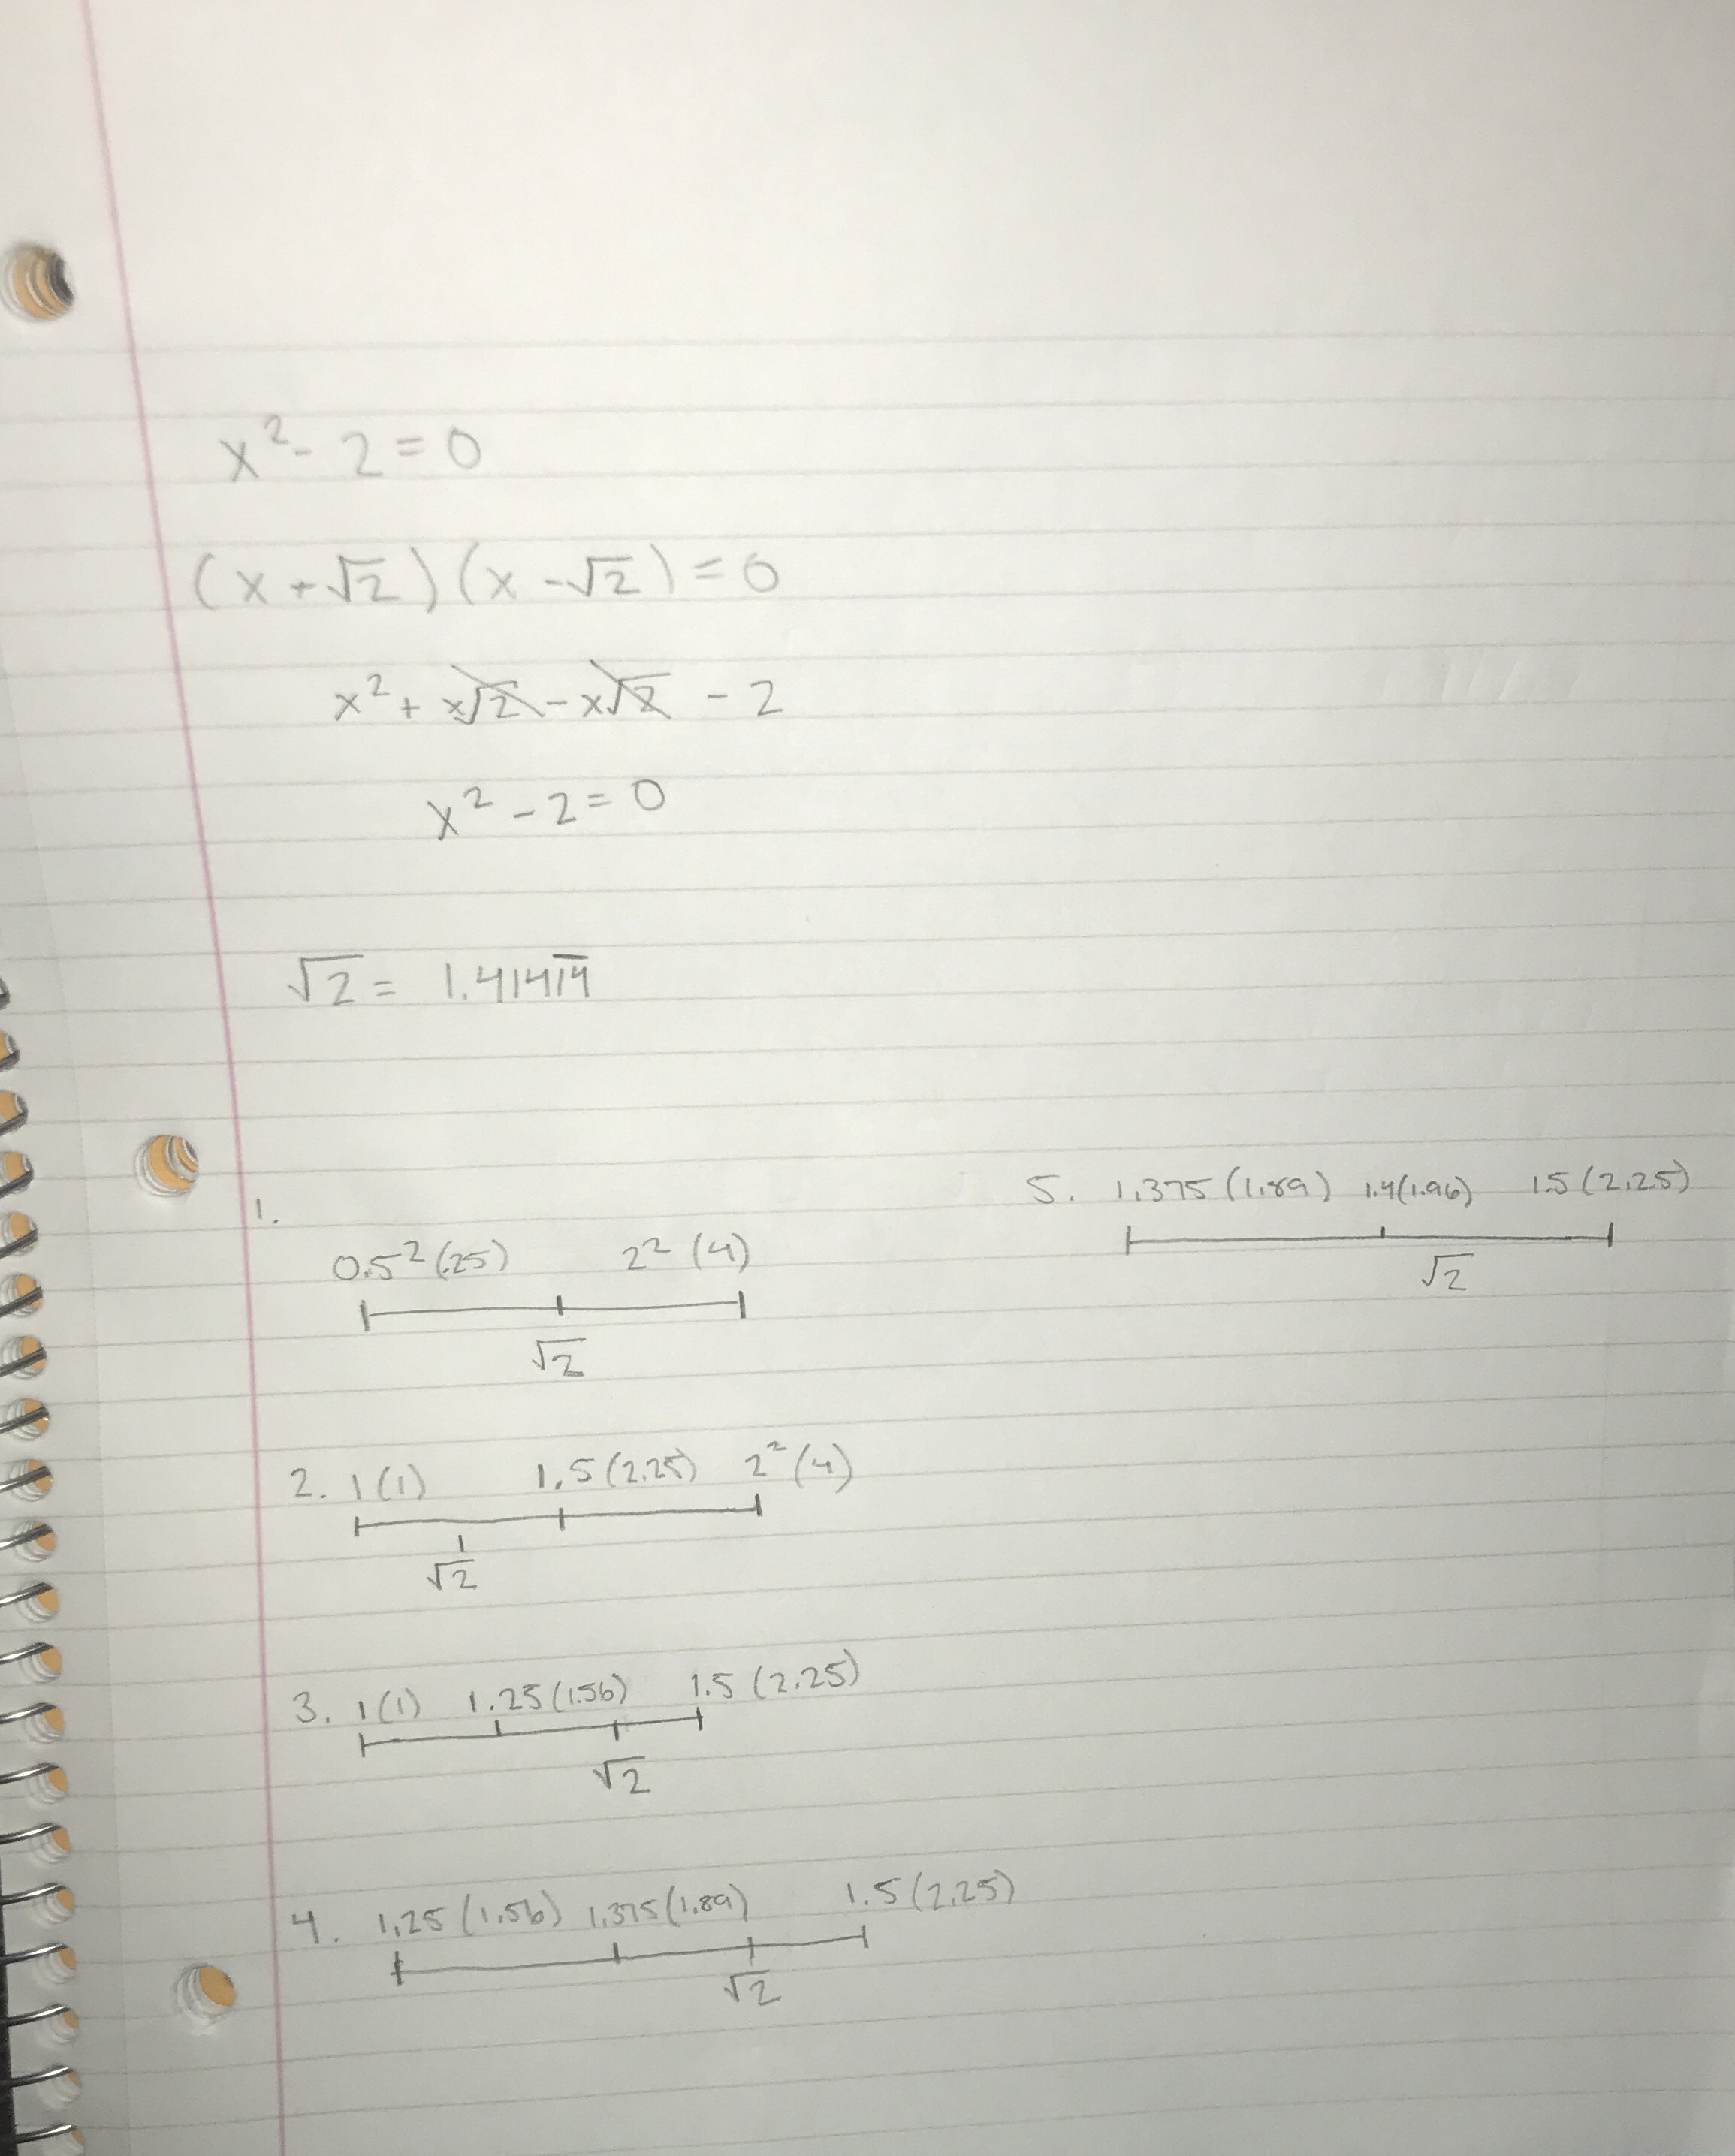 x² - 2 = 0
(x + √2)(x - √2) = 0
x² + x√2 - x√2 - 2
x² - 2 = 0
√2 = 1.4141̅4̅
1.
0.5² (.25) 2² (4)
√2
2. 1 (1) 1.5 (2.25) 2² (4)
√2
3. 1 (1) 1.25 (1.56) 1.5 (2.25)
√2
4. 1.25 (1.56) 1.375 (1.89) 1.5 (2.25)
√2
5. 1.375 (1.89) 1.4 (1.96) 1.5 (2.25)
√2